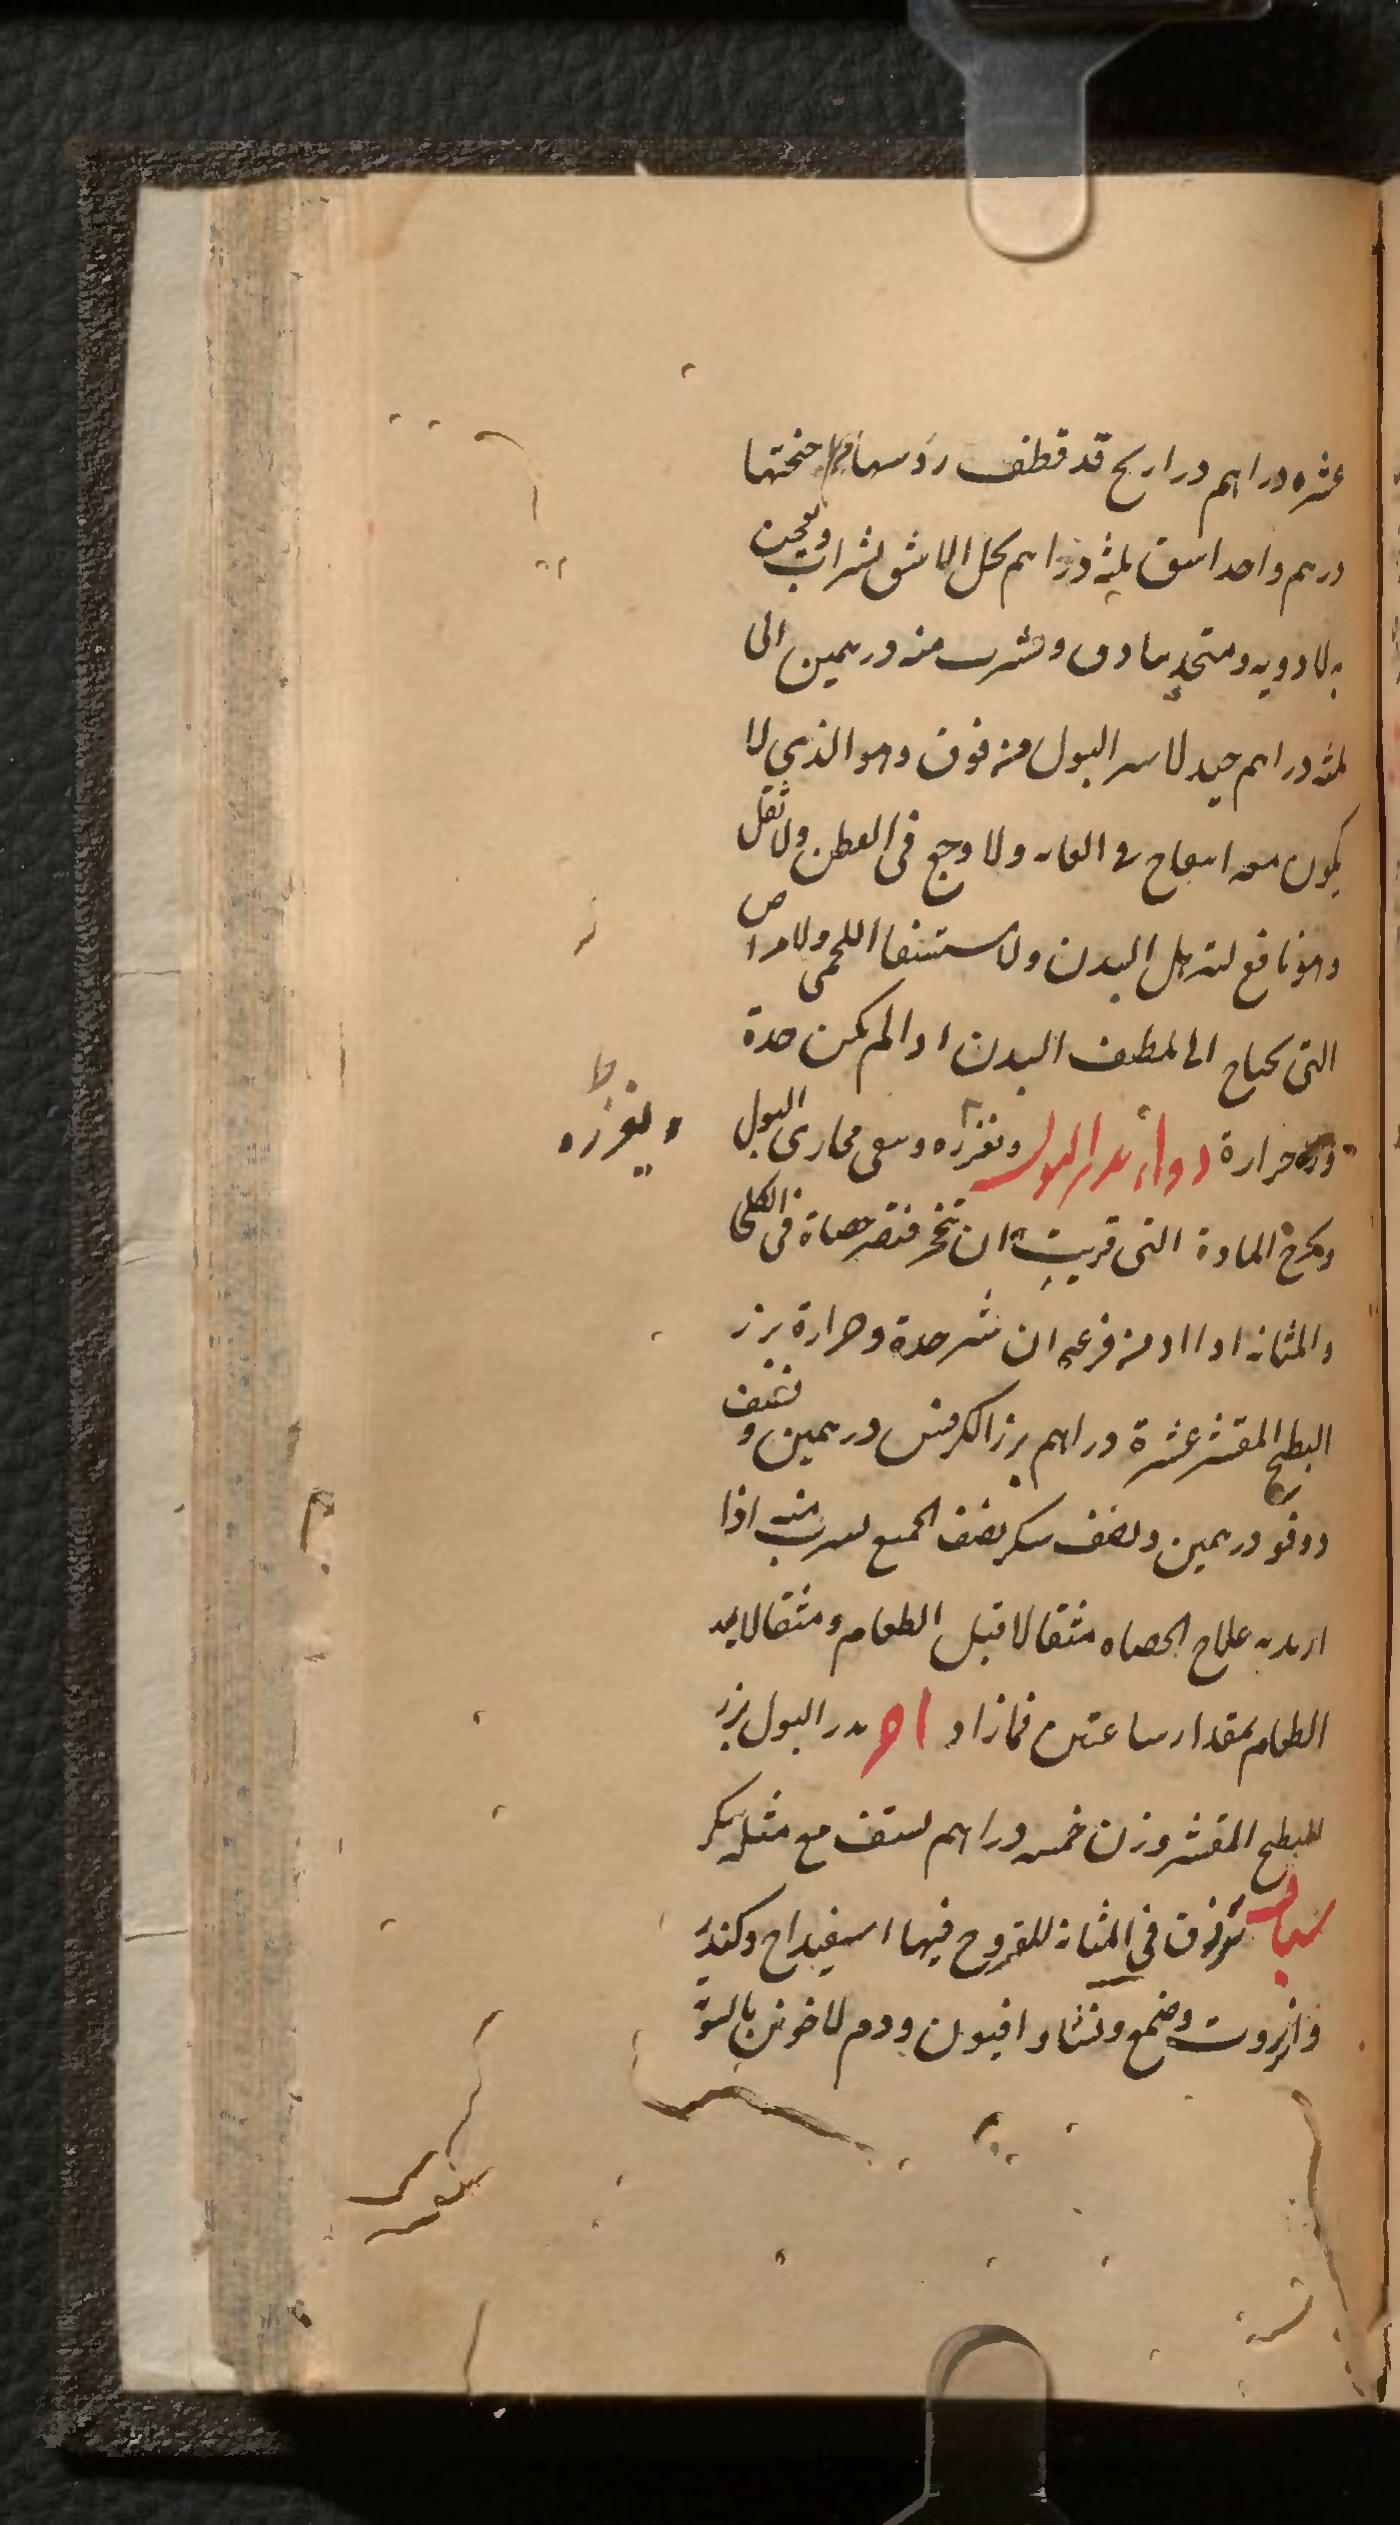 عشره دراهم دراريح قد قطف رؤسها واجنحتها
درهم واحد اسق ثلثه دراهم يحل الاشق بشراب وتعجن
به الادويه ويتخذ بنادق ويشرب منه درهمين الى
ثلثه دراهم جيد لاسر البول من فوق وهو الذي لا
يكون معه انتفاخ في العانه ولا وجع في القطن ولا ثقل
وهو نافع لترهل البدن ولاستسقا اللحمي ولامراض
التي يحتاج الى تلطيف البدن اذا لم يكن حدة
ولا حرارة دواء يدر البول ويغزره وينقي مجاري البول
ويخرج المادة التي قربت ان تتحجر فتصير حصاة في الكلى
والمثانه اذا ادمن فرعي ان يثير حدة وحرارة بزر
البطيخ المقشر عشرة دراهم بزر الكرفس درهمين ونصف
دوقو درهمين ونصف سكر نصف الجميع يشرب منه اذا
اريد به علاج الحصاه مثقالا قبل الطعام ومثقالا بعد
الطعام بمقدار ساعتين فمازاد اخر يدر البول بزر
البطيخ المقشر وزن خمسه دراهم يستف مع مثله سكر
شياف تزرق في المثانه للقروح فيها اسفيداج وكندر
وانزروت وصمغ ونشا وافيون ودم الاخوين بالسويه
ويغزره